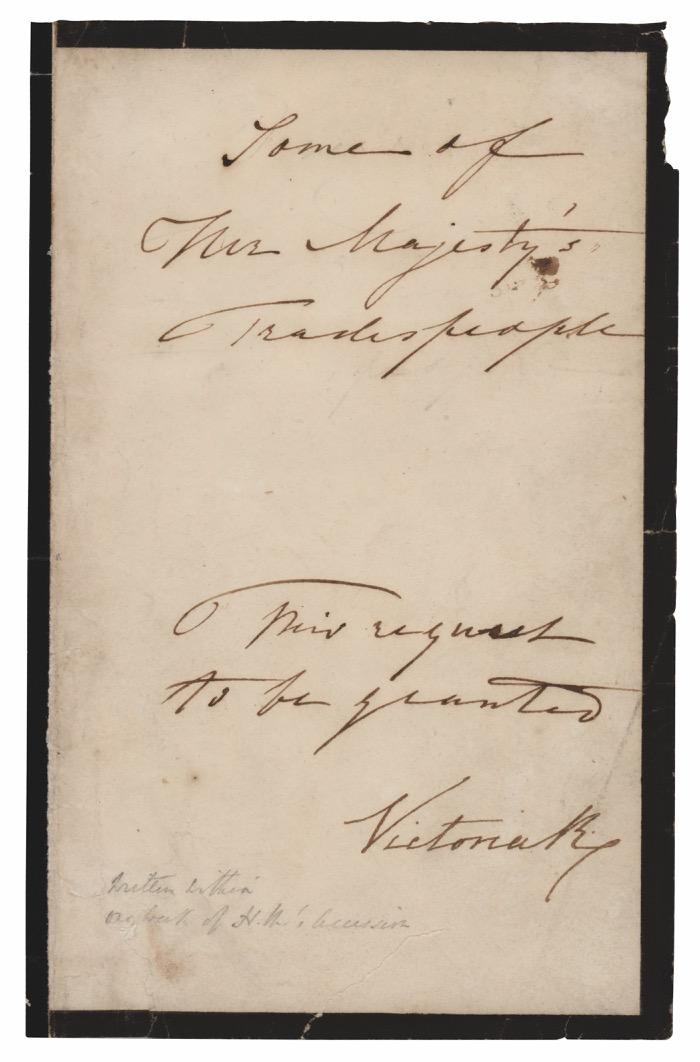 Some of
Her Majesty's
Tradespeople
This request
to be granted
Victoria R
Written within
one week of H.M's Accession